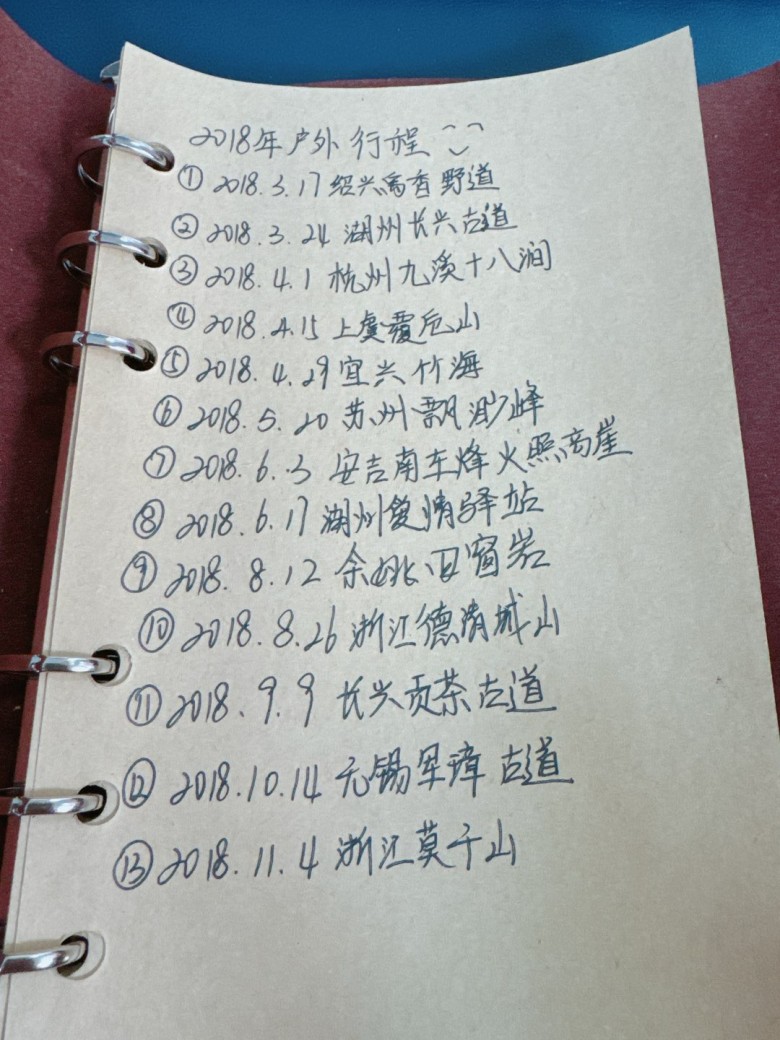 2018年户外行程
① 2018.3.17 绍兴禹香野道
② 2018.3.24 湖州长兴古道
③ 2018.4.1 杭州九溪十八涧
④ 2018.4.15 上虞覆卮山
⑤ 2018.4.29 宜兴竹海
⑥ 2018.5.20 苏州飘渺峰
⑦ 2018.6.3 安吉南车烽火照高崖
⑧ 2018.6.17 湖州爱情驿站
⑨ 2018.8.12 余姚四窗岩
⑩ 2018.8.26 浙江德清城山
⑪ 2018.9.9 长兴贡茶古道
⑫ 2018.10.14 无锡军璋古道
⑬ 2018.11.4 浙江莫干山